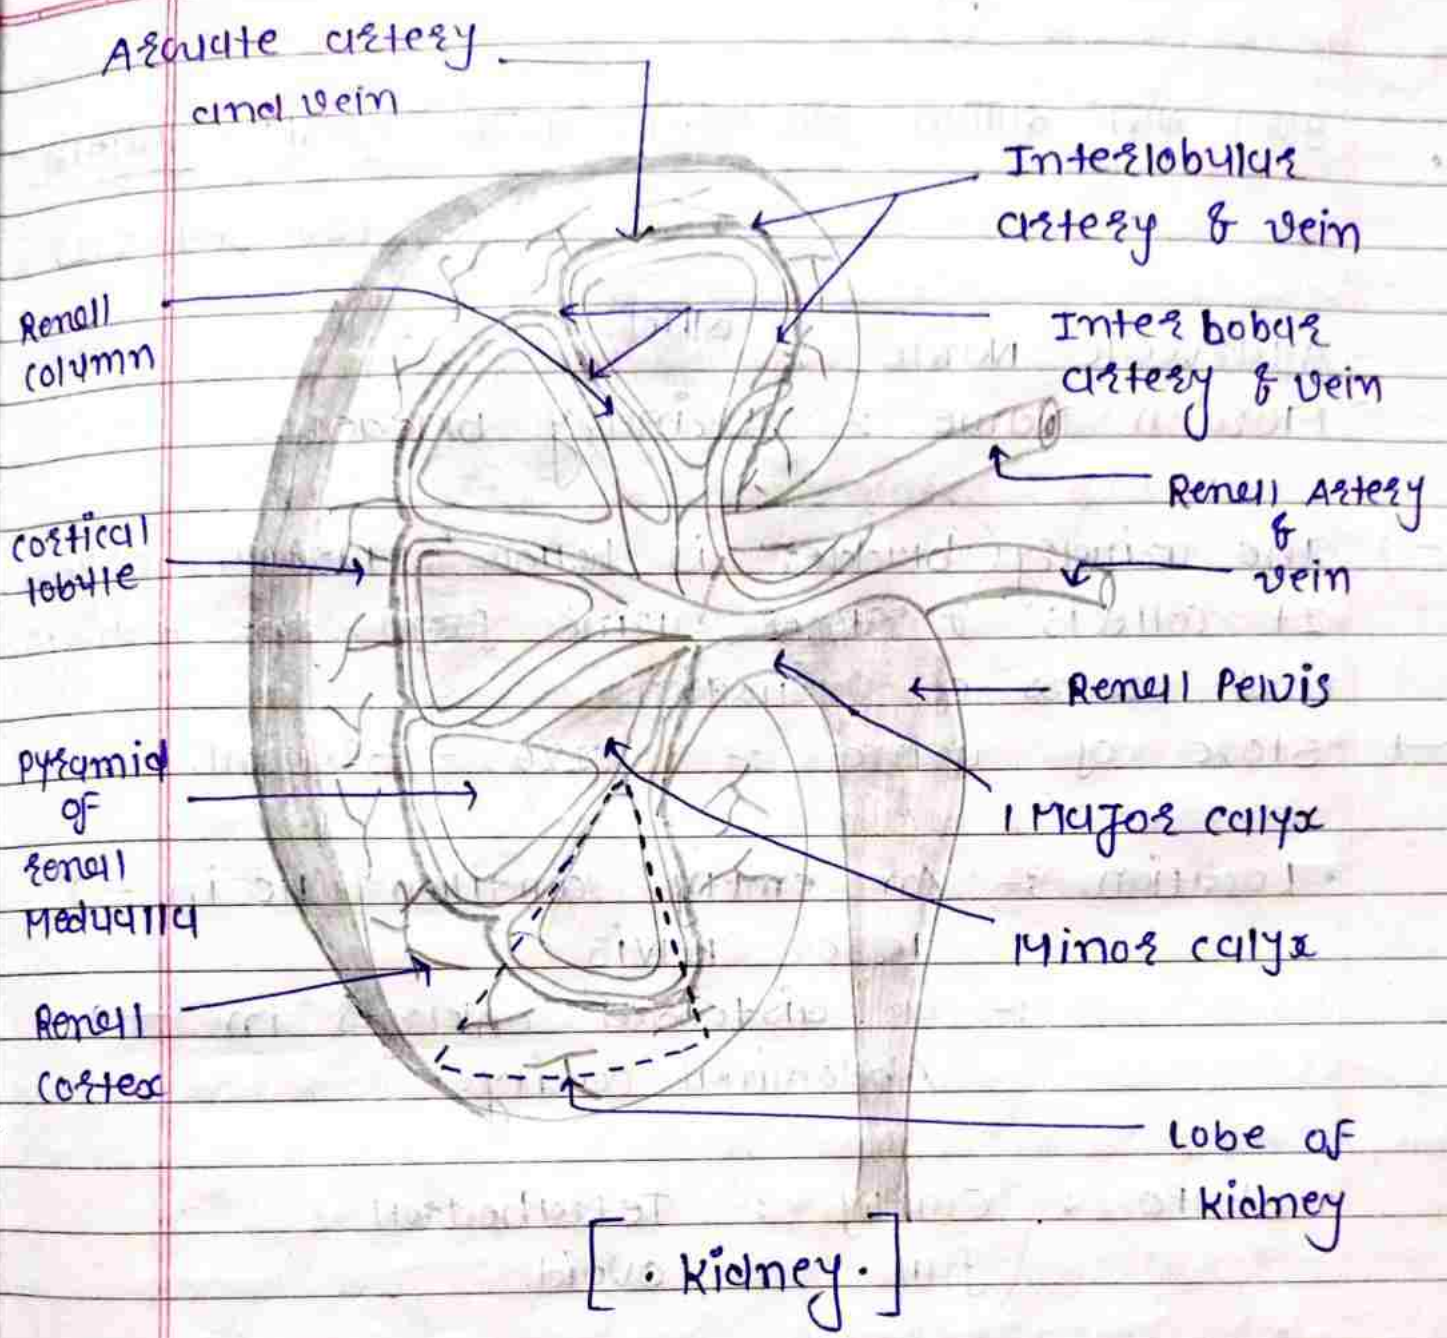 Arcuate artery
and vein
Interlobular
artery & vein
Renall
column
Inter bobar
artery & vein
Renall Artery
&
vein
cortical
lobule
Renall Pelvis
Pyramid
of
renall
Medualla
Major calyx
Minor calyx
Renall
cortex
Lobe of
kidney
[ . kidney . ]